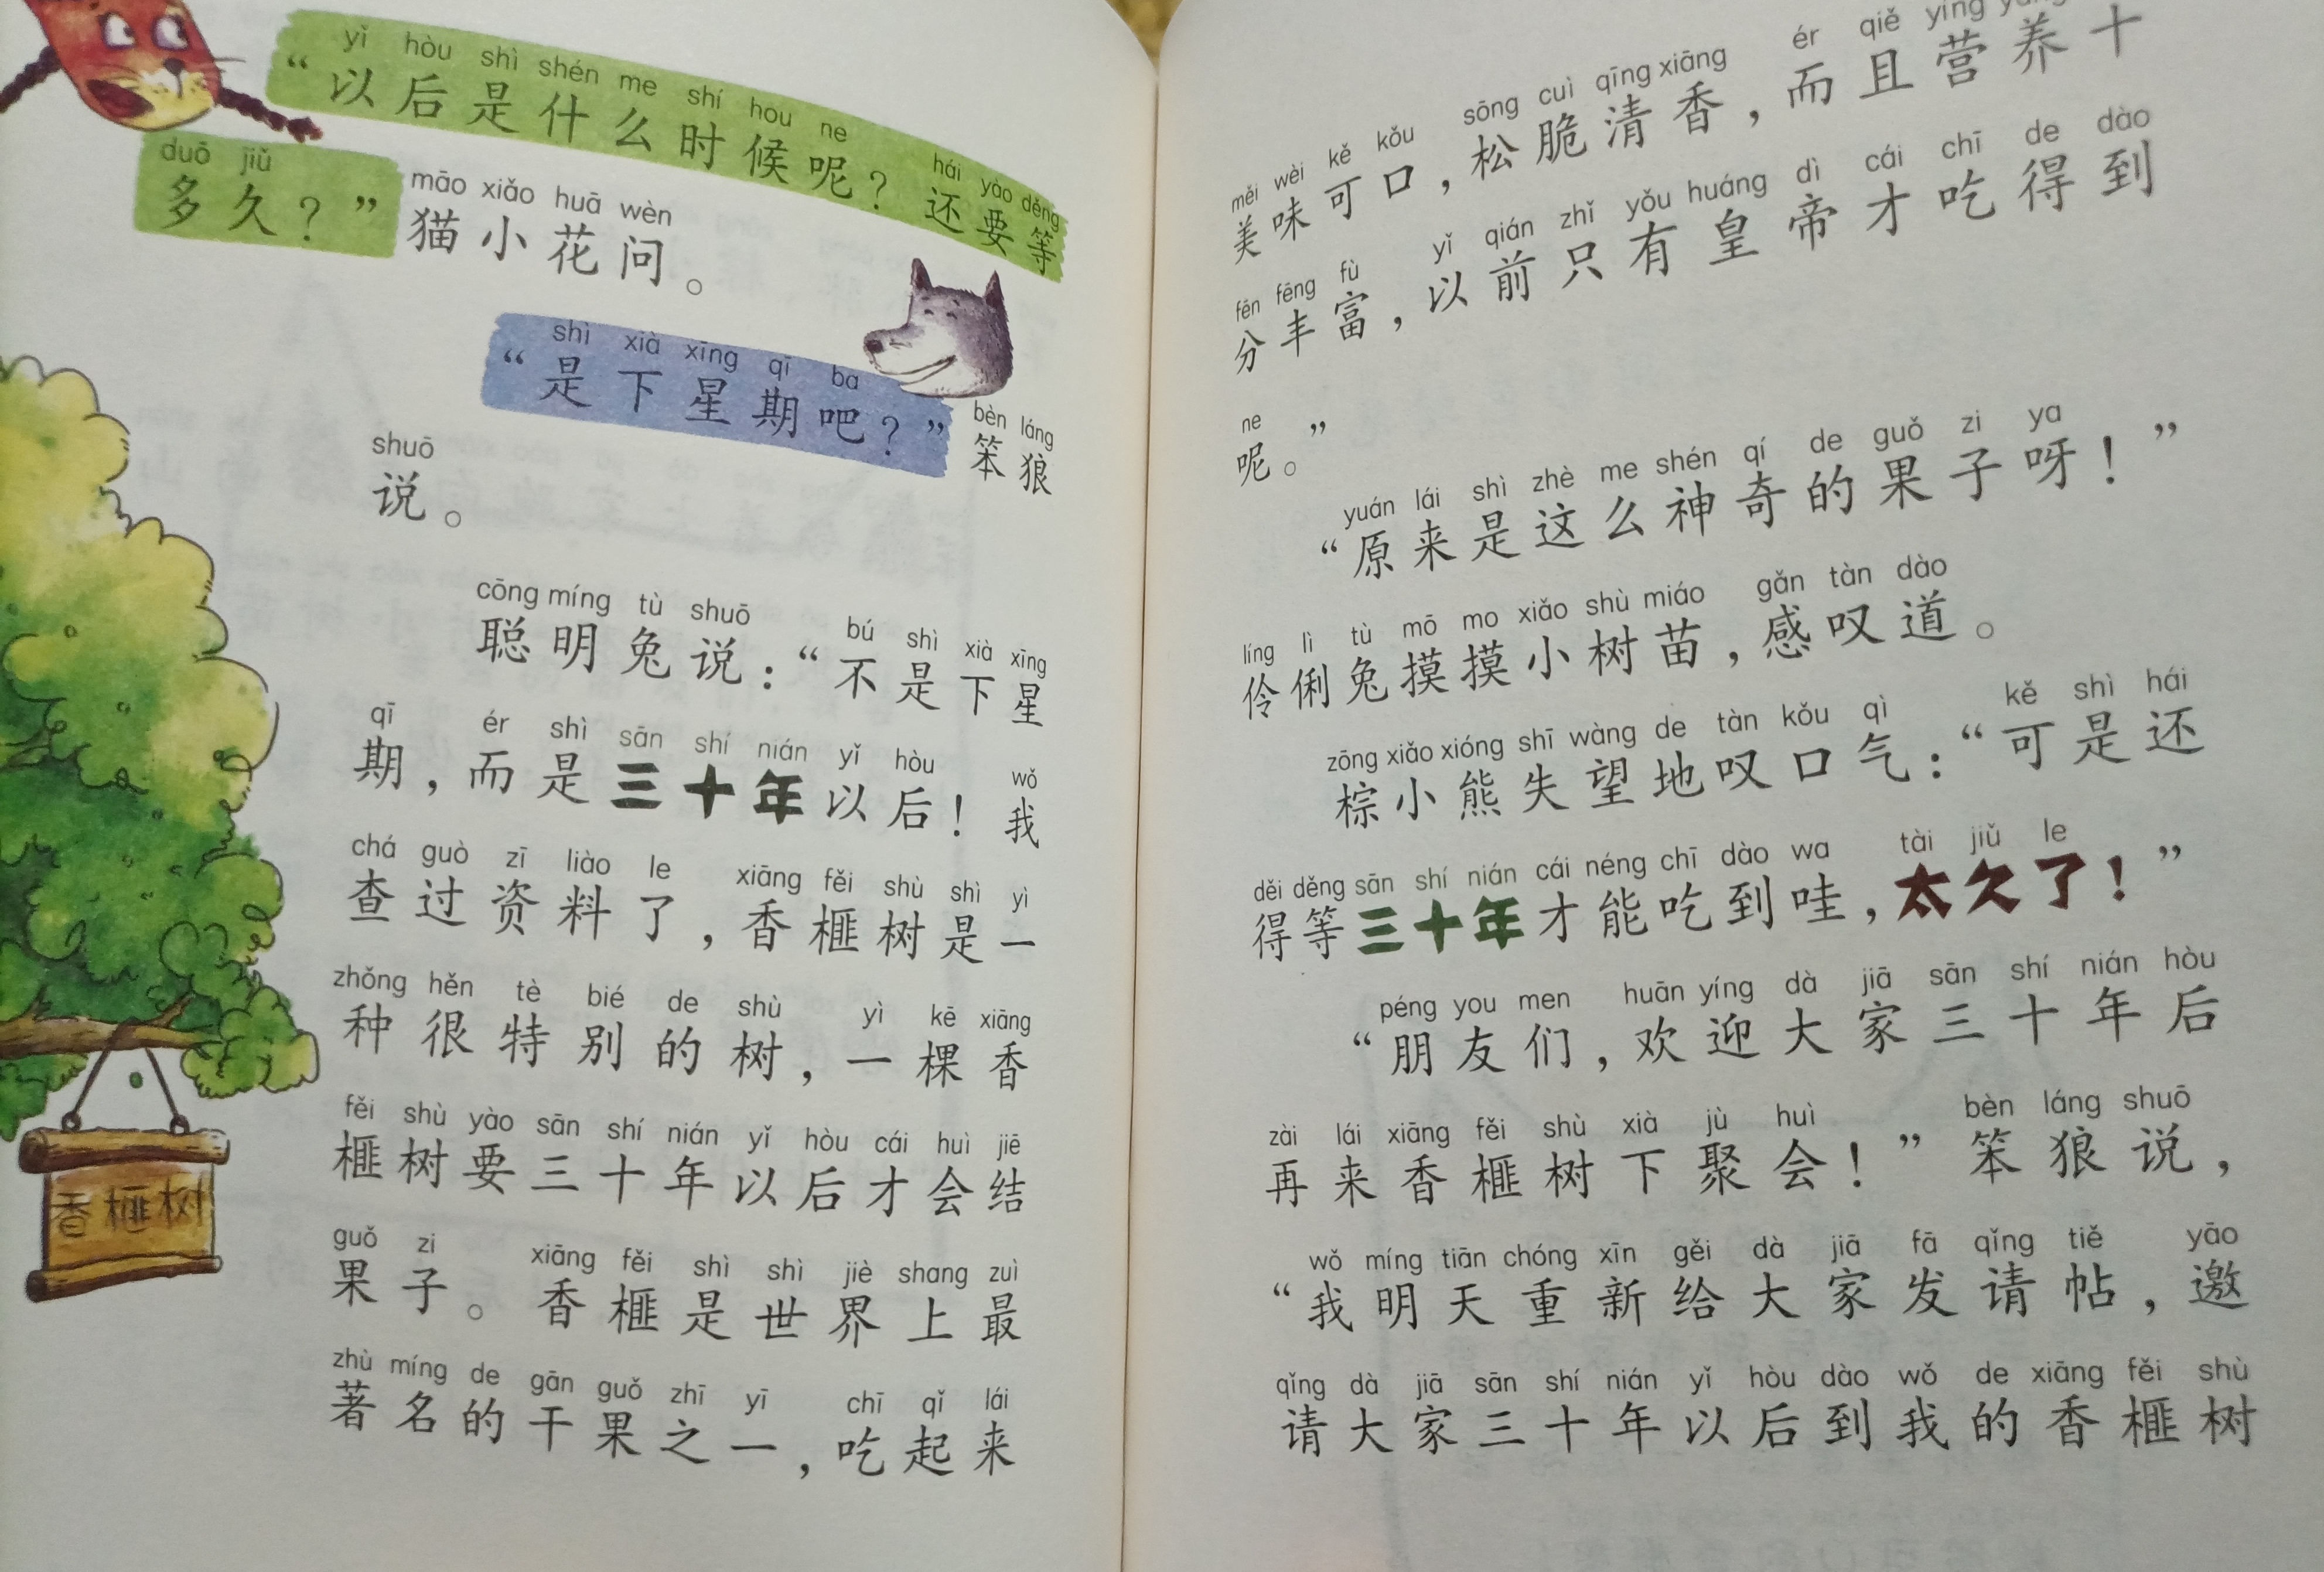 yǐ hòu shì shén me shí hou ne hái yào děng
“以后是什么时候呢？还要等
duō jiǔ māo xiǎo huā wèn
多久？”猫小花问。
shì xià xīng qī ba bèn láng
“是下星期吧？”笨狼
shuō
说。
cōng míng tù shuō bú shì xià xīng
聪明兔说：“不是下星
qī ér shì sān shí nián yǐ hòu wǒ
期，而是三十年以后！我
chá guò zī liào le xiāng fěi shù shì yì
查过资料了，香榧树是一
zhǒng hěn tè bié de shù yì kē xiāng
种很特别的树，一棵香
fěi shù yào sān shí nián yǐ hòu cái huì jiē
榧树要三十年以后才会结
guǒ zi xiāng fěi shì shì jiè shang zuì
果子。香榧是世界上最
zhù míng de gān guǒ zhī yī chī qǐ lái
著名的干果之一，吃起来
香榧树
měi wèi kě kǒu sōng cuì qīng xiāng ér qiě yíng
美味可口，松脆清香，而且营养十
fēn fēng fù yǐ qián zhǐ yǒu huáng dì cái chī de dào
分丰富，以前只有皇帝才吃得到
ne
呢。”
yuán lái shì zhè me shén qí de guǒ zi ya
“原来是这么神奇的果子呀！”
líng lì tù mō mo xiǎo shù miáo gǎn tàn dào
伶俐兔摸摸小树苗，感叹道。
zōng xiǎo xióng shī wàng de tàn kǒu qì kě shì hái
棕小熊失望地叹口气：“可是还
děi děng sān shí nián cái néng chī dào wa tài jiǔ le
得等三十年才能吃到哇，太久了！”
péng you men huān yíng dà jiā sān shí nián hòu
“朋友们，欢迎大家三十年后
zài lái xiāng fěi shù xià jù huì bèn láng shuō
再来香榧树下聚会！”笨狼说，
wǒ míng tiān chóng xīn gěi dà jiā fā qǐng tiě yāo
“我明天重新给大家发请帖，邀
qǐng dà jiā sān shí nián yǐ hòu dào wǒ de xiāng fěi shù
请大家三十年以后到我的香榧树